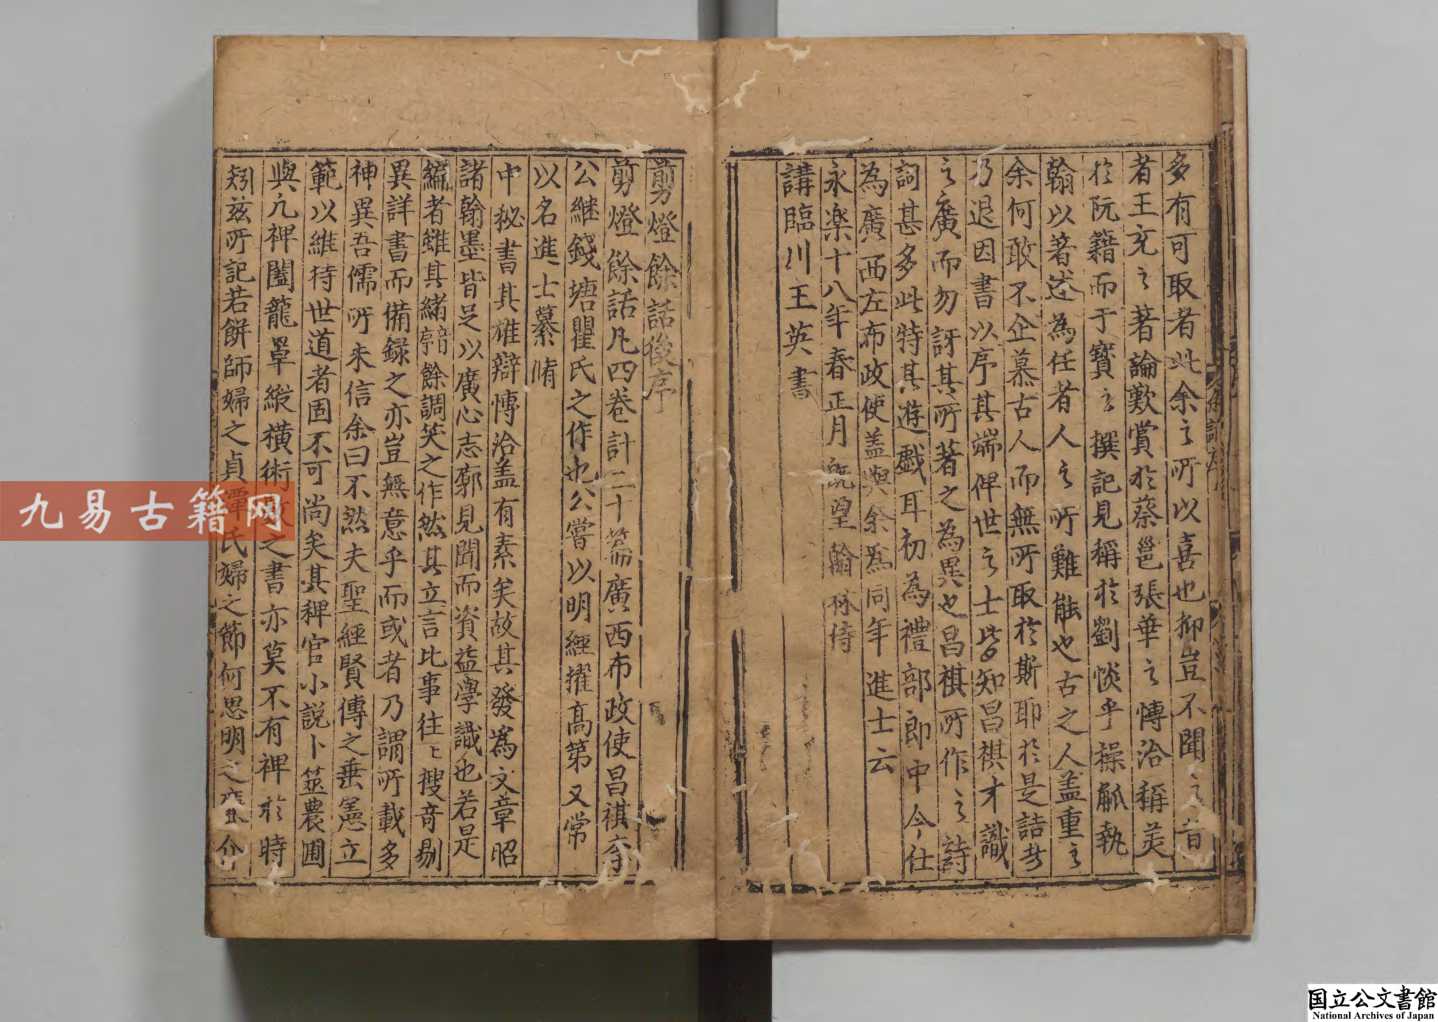 多有可取者此余之所以喜也抑豈不聞之昔
者王充之著論歎賞於蔡邕張華之愽洽稱美
於阮籍而于寳之撰記見稱於劉惔乎操觚執
翰以著述為任者人之所難能也古之人盖重之
余何敢不企慕古人而無所取於斯耶於是詰考
乃退因書以序其端俾世之士皆知昌祺才識
之廣而勿訝其所著之為異也昌祺所作之詩
詞甚多此特其遊戲耳初為禮部郎中今仕
為廣西左布政使盖與余為同年進士云
永楽十八年春正月既望翰林侍
講臨川王英書
剪燈餘話後序
剪燈餘話凡四巻計二十篇廣西布政使昌祺李
公継錢塘瞿氏之作也公嘗以明經擢高第又常
以名進士纂脩
中秘書其雄辯愽洽盖有素矣故其發為文章昭
諸翰墨皆足以廣心志廓見聞而資益學識也若是
編者雖其緒餘調笑之作然其立言比事往〻搜奇剔
異詳書而備録之亦豈無意乎而或者乃謂所載多
神異吾儒所未信余曰不然夫聖經賢傳之垂憲立
範以維持世道者固不可尚矣其稗官小説卜筮農圃
與凢禆闔籠罩縱横術數之書亦莫不有裨於時
矧兹所記若餅師婦之貞譚氏婦之節何思明之介
九易古籍网
国立公文書館
National Archives of Japan